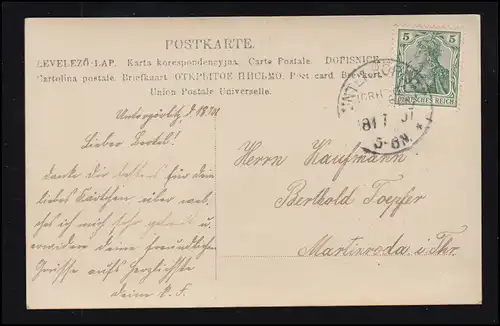 POSTKARTE.
LEVELEZŐ-LAP. Karta korespondencyjna. Carte Postale. DOPISNICE
Cartolina postale. Briefkaart ОТКРЫТОЕ ПИСЬМО. Post card Brevkort
Union Postale Universelle.
5 5
DEUTSCHES REICH
5-6N.
Lieber Bertel!
Danke dir bestens für dein
liebes Kärtchen über wel-
ches ich mich sehr gefreut u.
erwidere deine freundlichen
Grüsse aufs herzlichste
deine A. F.
Herrn Kaufmann
Berthold Toepfer
Martinroda i. Thr.